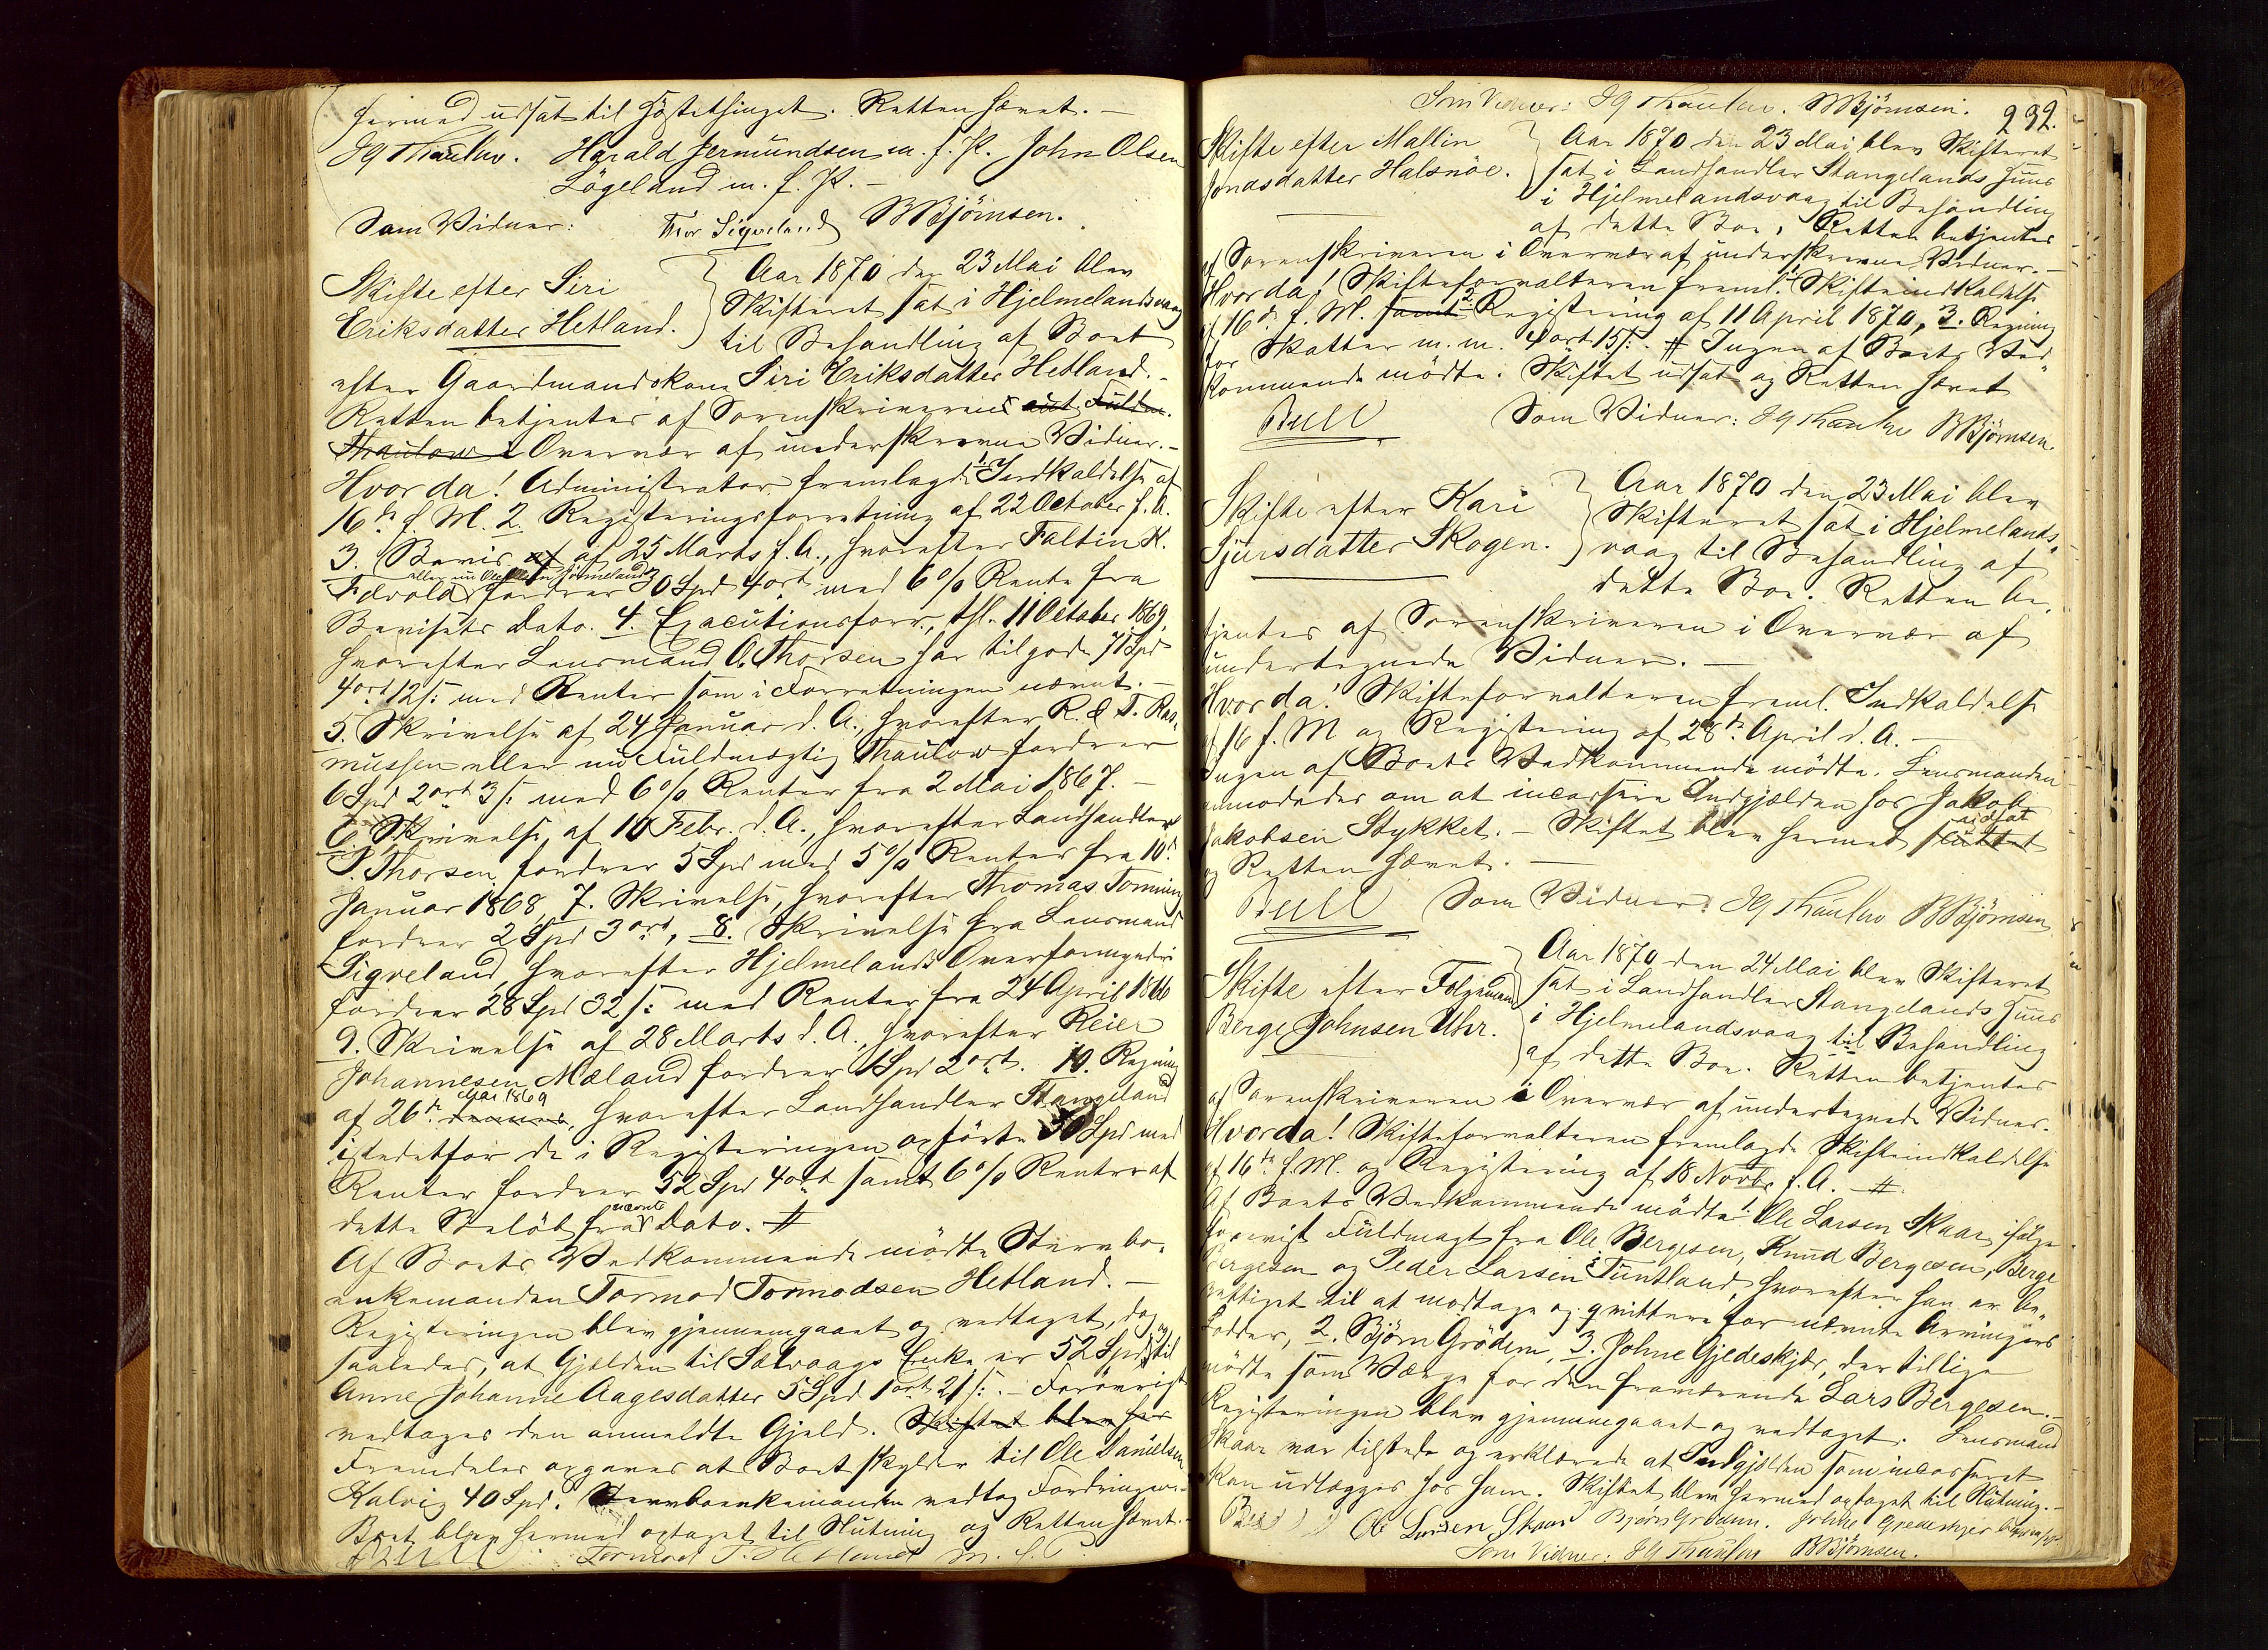 hermed udsat til Høstthinget. Retten hævet. —
JG Thaulow. Harald Jermundsen m. f. P. John Olsen
Lögeland m. f. P. —
Som Vidner: Thor Sigveland BBjörnsen.
Skifte efter Siri
Eriksdatter Hetland.
Aar 1870 den 23 Mai blev
Skifteret sat i Hjelmelandsvaag
til Behandling af Boet
efter Gaardmandskone Siri Eriksdatter Hetland. —
Retten betjentes af Sorenskriveren aut. Fuldm.
Thaulow i Overvær af underskrevne Vidner. —
Hvor da! Administrator fremlagde 1. Indkaldelse af
16de f. M. 2. Registreringsforretning af 22 October f. A.
3. Bevis af af 25 Marts f. A., hvorefter Faltin K.
eller nu
Fævold fordrer 30 Spd 4 ort med 6% Rente fra
Bevisets Dato. 4. Executionsforr., thl. 11 October 1869,
hvorefter Lensmand O. Thorsen har tilgode 71 Spd
4 ort 12 s: med Renter som i Forretningen nævnt. —
5. Skrivelse af 24 Januar d. A., hvorefter R. & T. Ras-
mussen eller nu Fuldmægtig Thaulow fordrer
6 Spd 2 ort 3 s: med 6% Renter fra 2 Mai 1867. —
6. Skrivelse af 10 Febr. d. A., hvorefter Landhandler
P. Thorsen fordrer 5 Spd med 5% Renter fra 10d
Januar 1868, 7. Skrivelse, hvorefter Thomas Tomming
fordrer 2 Spd 3 ort, 8. Skrivelse fra Lensmand
Sigveland, hvorefter Hjelmelands Overformynderi
fordrer 28 Spd 32 s: med Renter fra 24 April 1866
9. Skrivelse af 28 Marts d. A., hvorefter Reier
Johannesen Mæland fordrer 1 Spd 2 ort. 10. Regning
Mai 1869
af 26de dennes, hvorefter Landhandler Stangeland
istedetfor de i Registeringen opførte 50 Spd med
Renter fordrer 52 Spd 4 ort samt 6% Renter af
nævnte
dette Beløb fra Dato. #
Af Boets Vedkommende mødte Stervbo-
enkemanden Tormod Tormodsen Hetland. —
Registeringen blev gjennemgaaet og vedtaget, dog
saaledes, at Gjælden til Selvaags Enke er 52 Spd, og til
Anne Johanne Aagesdatter 5 Spd 1 ort 21 s: — Forøvrigt
vedtages den anmeldte Gjæld. Skiftet blev her
Fremdeles opgaves at Boet skylder til Ole Danielsen
Kalvig 40 Spd. Stervboenkemanden vedtog Fordringen. —
Boet blev hermed optaget til Slutning og Retten hævet. —
Bull Tormod T. Hetland m. f. P.
Som Vidner: JG Thaulow. BBjörnsen.
232.
Skifte efter Mallin
Jonasdatter Halsnöe.
Aar 1870 den 23 Mai blev Skifteret
sat i Landhandler Stangelands Huus
i Hjelmelandsvaag til Behandling
af dette Boe. Retten betjentes
af Sorenskriveren i Overvær af underskrevne Vidner. —
Hvor da! Skifteforvalteren freml. 1. Skifteindkaldelse
af 16de f. M. samt 2. Registering af 11 April 1870, 3. Regning
for Skatter m. m. 4 ort 15 s: # Ingen af Boets Ved-
kommende mødte. Skiftet udsat og Retten hævet
Bull Som Vidner: JG Thaulow BBjörnsen.
Skifte efter Kari
Sjursdatter Skogen.
Aar 1870 den 23 Mai blev
Skifteret sat i Hjelmelands-
vaag til Behandling af
dette Boe. Retten be-
tjentes af Sorenskriveren i Overvær af
undertegnede Vidner. —
Hvor da! Skifteforvalteren freml. Indkaldelse
af 16 f. M og Registering af 28de April d. A. —
Ingen af Boets Vedkommende mødte. Lensmanden
anmodedes om at incassere Indgjælden hos Jakob
udsat
Jakobsen Stykket. — Skiftet blev hermed sluttet
og Retten hævet. —
Bull Som Vidner: JG Thaulow BBjörnsen
Skifte efter Folgemand
Berge Johnsen Uhr.
Aar 1870 den 24 Mai blev Skifteret
sat i Landhandler Stangelands Huus
i Hjelmelandsvaag til Behandling
af dette Boe. Retten betjentes
af Sorenskriveren i Overvær af undertegnede Vidner.
Hvor da! Skifteforvalteren fremlagde Skifteindkaldelse
af 16de f. M. og Registering af 18 Novbr. f. A. — #
Af Boets Vedkommende mødte 1. Ole Larsen Skaar, ifølge
forevist Fuldmagt fra Ole Bergesen, Knud Bergesen, Berge
Bergesen og Peder Larsen Tuntland, hvorefter han er be-
rettiget til at modtage og qvittere for nævnte Arvingers
Lodder, 2. Björn Grödem, 3. Johne Gjedeskjær, der tillige
mødte som Værge for den fraværende Lars Bergesen. —
Registeringen blev gjennemgaaet og vedtaget. Lensmand
Skaar var tilstede og erklærede at Indgjælden som incasseret
kan udlægges hos ham. Skiftet blev hermed optaget til Slutning. —
Bull Ole Larsen Skaar Björn Grödem. Johne Gjedeskjær
Som Vidner: JG Thaulow BBjörnsen.